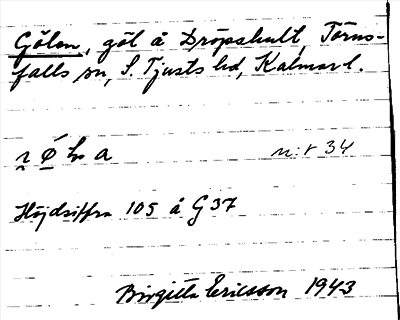 Gölen, göl å Dröpshult, Törns-
falls sn, S. Tjusts hd, Kalmar l.
n:r 34
Höjdsiffra 105 å G 37
Birgitta Ericsson 1943